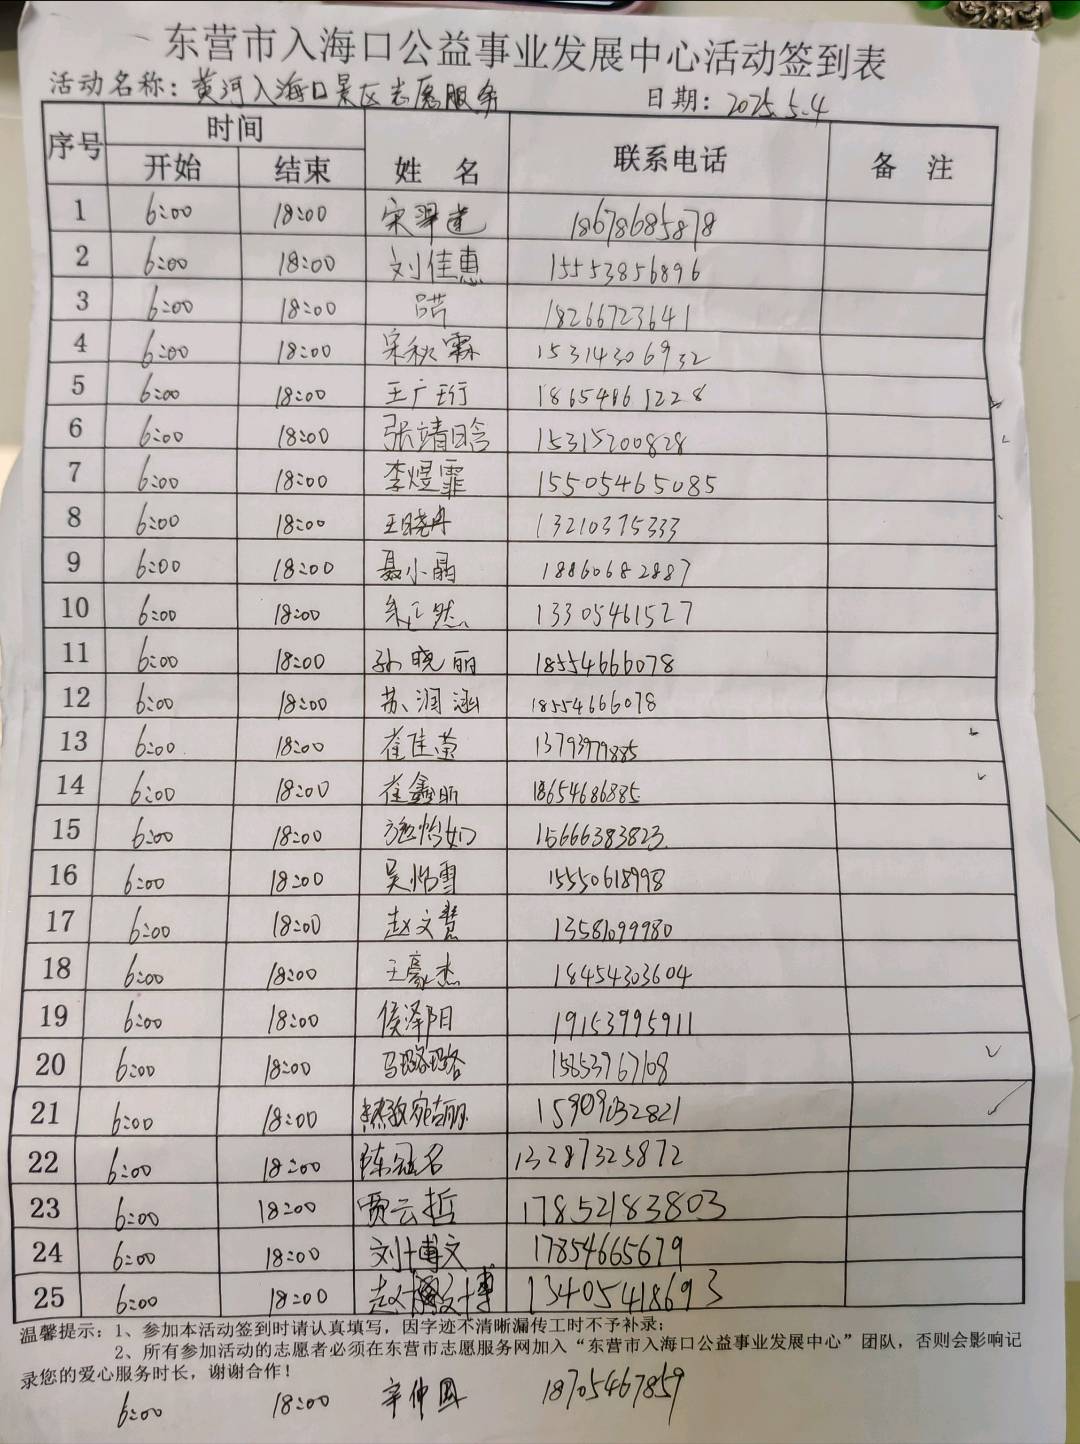 东营市入海口公益事业发展中心活动签到表
活动名称：黄河入海口景区志愿服务 日期：2025.5.4
序号 时间 姓名 联系电话 备注
开始 结束
1 6:00 18:00 宋翠莲 18678685878
2 6:00 18:00 刘佳惠 15553856896
3 6:00 18:00 18266723641
4 6:00 18:00 宋秋霖 15314306932
5 6:00 18:00 王广珩 18654861228
6 6:00 18:00 张靖晗 15315200828
7 6:00 18:00 李煜霏 15505465085
8 6:00 18:00 王晓丹 13210375333
9 6:00 18:00 聂小晶 18860682887
10 6:00 18:00 朱正然 13305461527
11 6:00 18:00 孙晓丽 18554666078
12 6:00 18:00 苏润涵 18554666078
13 6:00 18:00 崔佳莹 13793979885
14 6:00 18:00 崔鑫昕 18654686885
15 6:00 18:00 施怡如 15666383823
16 6:00 18:00 吴怡雪 15550618998
17 6:00 18:00 赵文慧 13581099980
18 6:00 18:00 王豪杰 18454303604
19 6:00 18:00 侯泽阳 19153995911
20 6:00 18:00 马璐璐 15853967108
21 6:00 18:00
22 6:00 18:00 陈冠名 13287325872
23 6:00 18:00 贾云哲 17852183803
24 6:00 18:00 刘博文 17854665679
25 6:00 18:00 13405418693
温馨提示：1、参加本活动签到时请认真填写，因字迹不清晰漏传工时不予补录；
2、所有参加活动的志愿者必须在东营市志愿服务网加入“东营市入海口公益事业发展中心”团队，否则会影响记
录您的爱心服务时长，谢谢合作！
6:00 18:00 辛仲国 18705467859